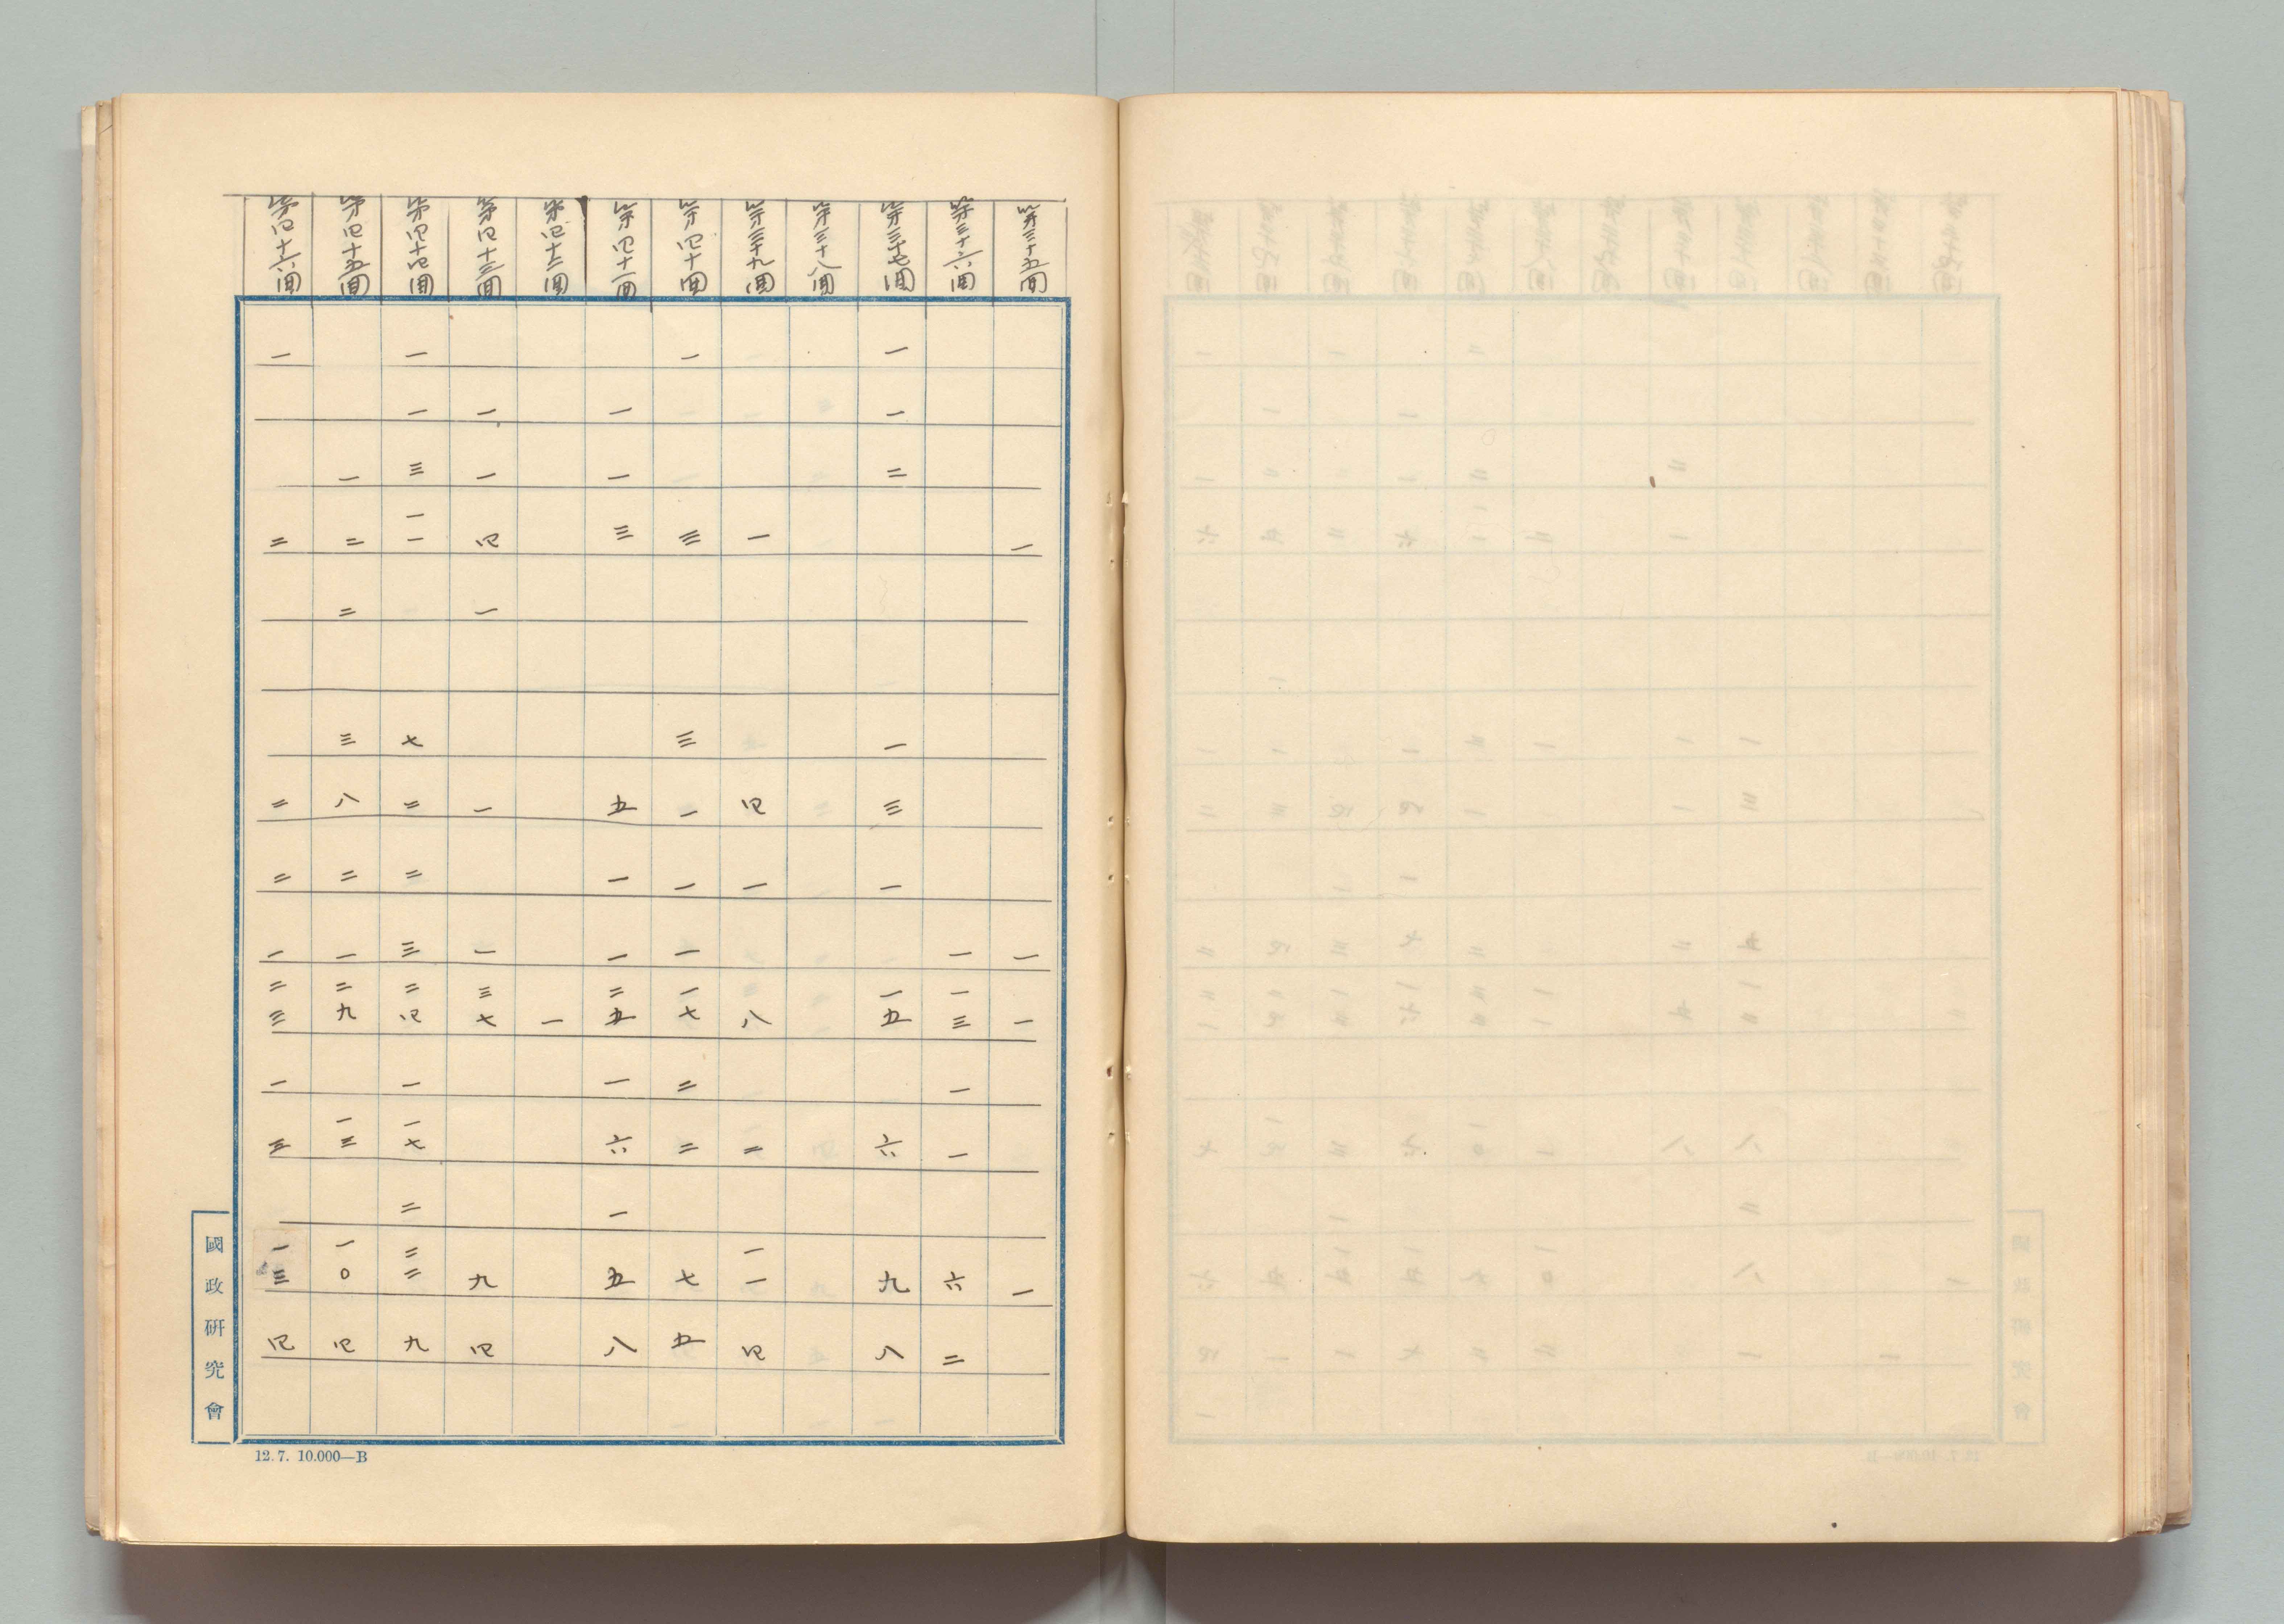 第三十五回 一 一 一 一
第三十六回 一 一三 一 一 六 二
第三十七回 一 一 二 一 三 一 一五 六 九 八
第三十八回
第三十九回 一 四 一 八 二 一一 四
第四十回 一 三 三 一 一 一 一七 二 二 七 五
第四十一回 一 一 三 五 一 一 二五 一 六 一 五 八
第四十二回 一
第四十三回 一 一 四 一 一 一 三七 九 四
第四十四回 一 一 三 一一 七 二 二 三 二四 一 一七 二 二二 九
第四十五回 一 二 二 三 八 二 一 二九 一三 一〇 四
第四十六回 一 二 二 二 一 二三 一 三 一三 四
國政研究會
12.7. 10.000—B